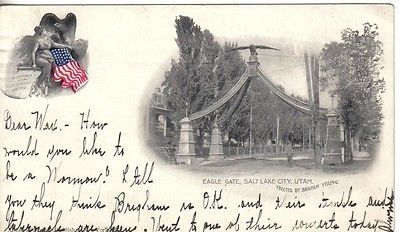 EAGLE GATE, SALT LAKE CITY, UTAH.
ERECTED BY BRIGHAM YOUNG.
Dear Max. - How
would you like to
be a Mormon? I tell
you they think Brigham is O.K. and their temple and
tabernacle are Went to one of their concerts today